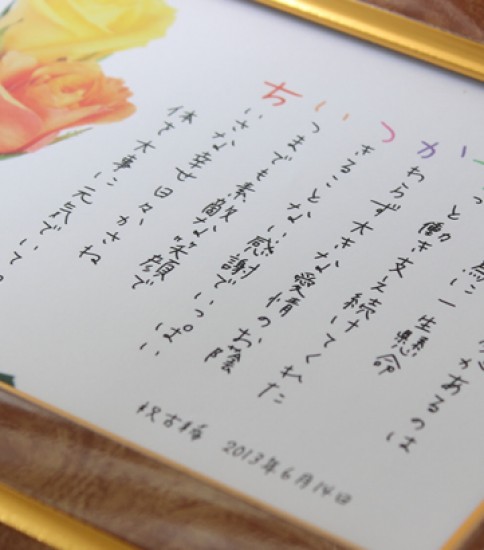 があるのは
為に一生懸命
っと働き支え続けてくれた
かわらず大きな愛情のお陰
つきることない感謝でいっぱい
いつまでも素敵な笑顔で
ちいさな幸せ日々かさね
体を大事に元気でいて。
祝古稀 2013年6月14日